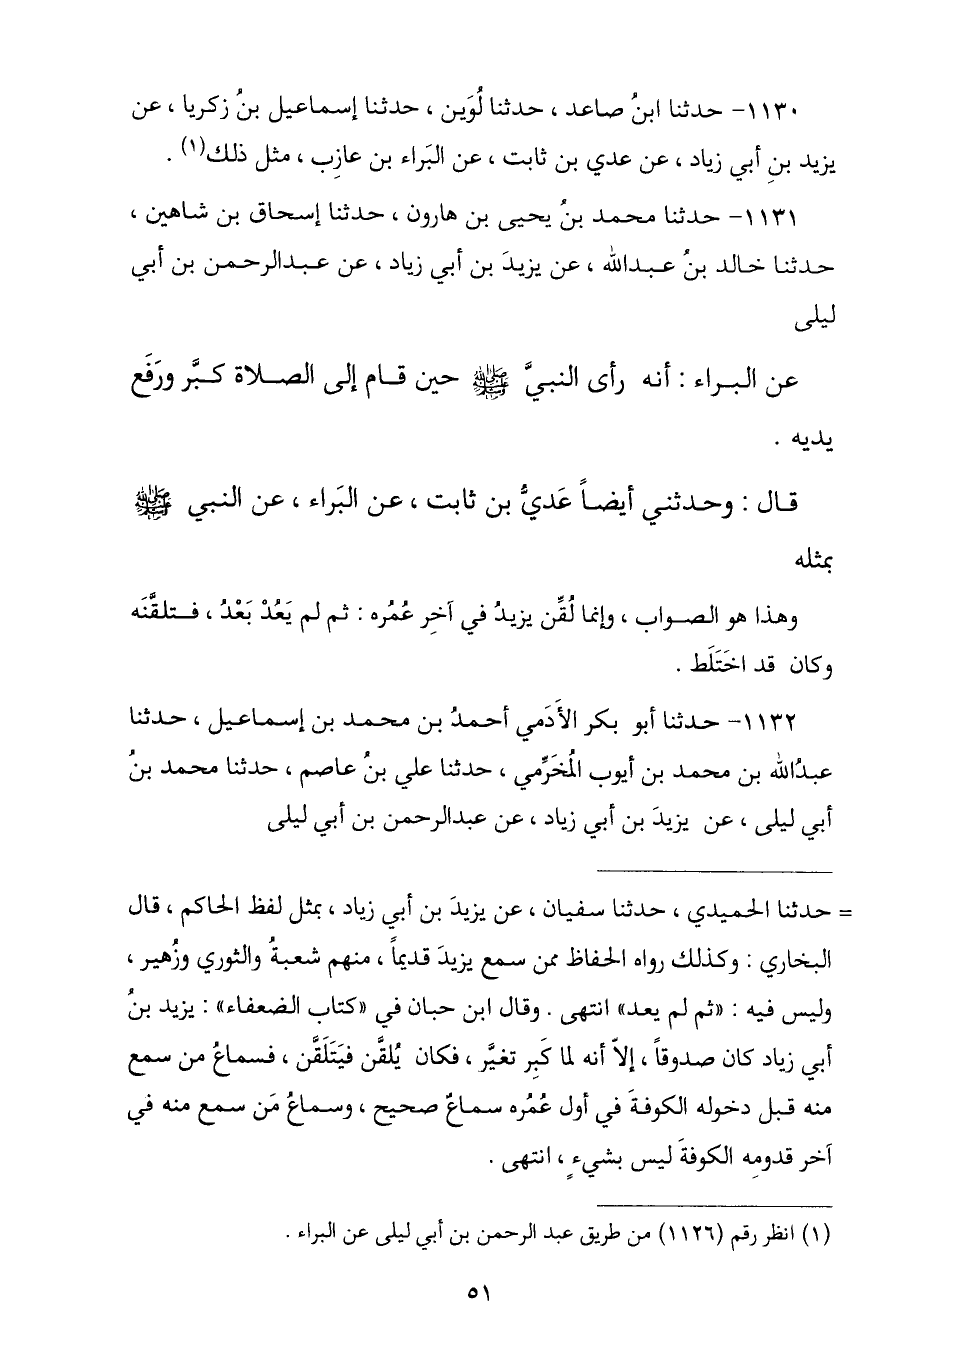 ١١٣٠- حدثنا ابنُ صاعد ، حدثنا لُوَين ، حدثنا إسماعيل بنُ زكريا ، عن
يزيد بنِ أبي زياد ، عن عدي بن ثابت ، عن البَراء بن عازِب ، مثل ذلك(١) .
١١٣١- حدثنا محمد بنُ يحيى بن هارون ، حدثنا إسحاق بن شاهين ،
حدثنا خالد بنُ عبدالله ، عن يزيدَ بن أبي زياد ، عن عبدالرحمن بن أبي
ليلى
عن البراء : أنه رأى النبيَّ ﷺ حين قام إلى الصلاة كبَّر ورَفَع
يديه .
قال : وحدثني أيضاً عَديُّ بن ثابت ، عن البَراء ، عن النبي ﷺ
بمثله
وهذا هو الصواب ، وإنما لُقِّن يزيدُ في آخرِ عُمُره : ثم لم يَعُدْ بَعْدُ ، فتلقَّنَه
وكان قد اخَتَلَط .
١١٣٢- حدثنا أبو بكر الأَدَمي أحمدُ بن محمد بن إسماعيل ، حدثنا
عبدُالله بن محمد بن أيوب المُخَرِّمي ، حدثنا علي بنُ عاصم ، حدثنا محمد بنُ
أبي ليلى ، عن يزيدَ بن أبي زياد ، عن عبدالرحمن بن أبي ليلى
= حدثنا الحميدي ، حدثنا سفيان ، عن يزيدَ بن أبي زياد ، بمثل لفظ الحاكم ، قال
البخاري : وكذلك رواه الحفاظ ممن سمع يزيدَ قديماً ، منهم شعبةُ والثوري وزُهير ،
وليس فيه : «ثم لم يعد» انتهى . وقال ابن حبان في «كتاب الضعفاء» : يزيد بنُ
أبي زياد كان صدوقاً ، إلاّ أنه لما كَبِر تغيَّر ، فكان يُلقَّن فيَتَلَقَّن ، فسماعُ من سمع
منه قبل دخوله الكوفةَ في أول عُمُره سماعٌ صحيح ، وسماعُ مَن سمع منه في
آخر قدومِه الكوفةَ ليس بشيءٍ ، انتهى .
(١) انظر رقم (١١٢٦) من طريق عبد الرحمن بن أبي ليلى عن البراء .
٥١